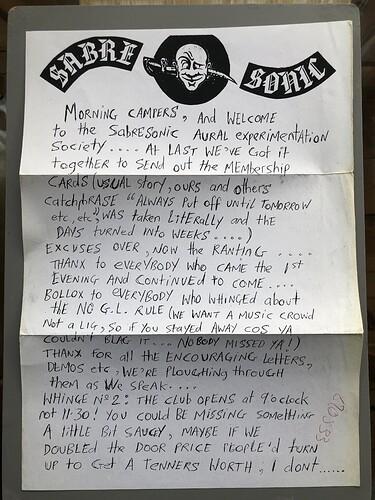 SABRE SONIC
MORNING CAMPERS, AND WELCOME
to the SABRESONIC AURAL EXPERIMENTATION
SOCIETY.... At LAST WE'VE Got it
together to SEND out the MEMBERSHIP
CARDS (USUAL StORY, OURS and others
catchPHRASE "ALWAYS PUt OFF UNtil toMORROW
etc, etc," WAS tAKEN LitERALLY and the
DAYS tURNED INto WEEKS....)
EXCUSES OVER, NOW the RANTING ....
THANX to EVERYBODY WHO CAME the 1st
EVENING AND CONTINUED to COME....
BOLLOX to EVERYBODY WHO WHINGED about
the NO G.L. RULE (WE WANT A MUSIC CROWD
Not A LIG, SO if YOU StAYED AWAY COS YA
COULDN'T BLAG it... NOBODY MISSED YA!)
THANX FOR all the ENCOURAGING LetteRS,
DEMOS etc, WE'RE PLOUGHING tHROUGH
thEM AS WE SPEAK....
WHINGE Nº2: tHE CLUB OPENS at 9 o'clock
not 11:30! YOU COULD BE MISSING SOMETHING
A LIttLE Bit SAUCY, MAYBE IF WE
DOUBLED the DOOR PRICE PEOPLE'd tURN
UP to GET A TENNERS WORTH, I dont......